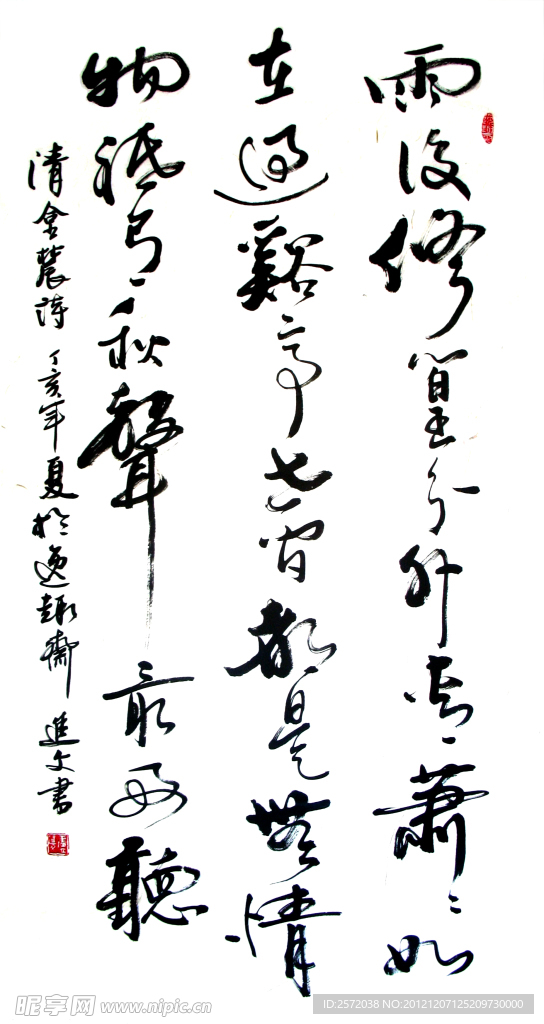 雨後修篁分外青蕭〻如
在過谿亭世間都是無情
物祗有秋聲最好聽
清金農詩 丁亥年夏於逸趣齋 進文書
昵享网 www.nipic.cn
ID:2572038 NO:20121207125209730000